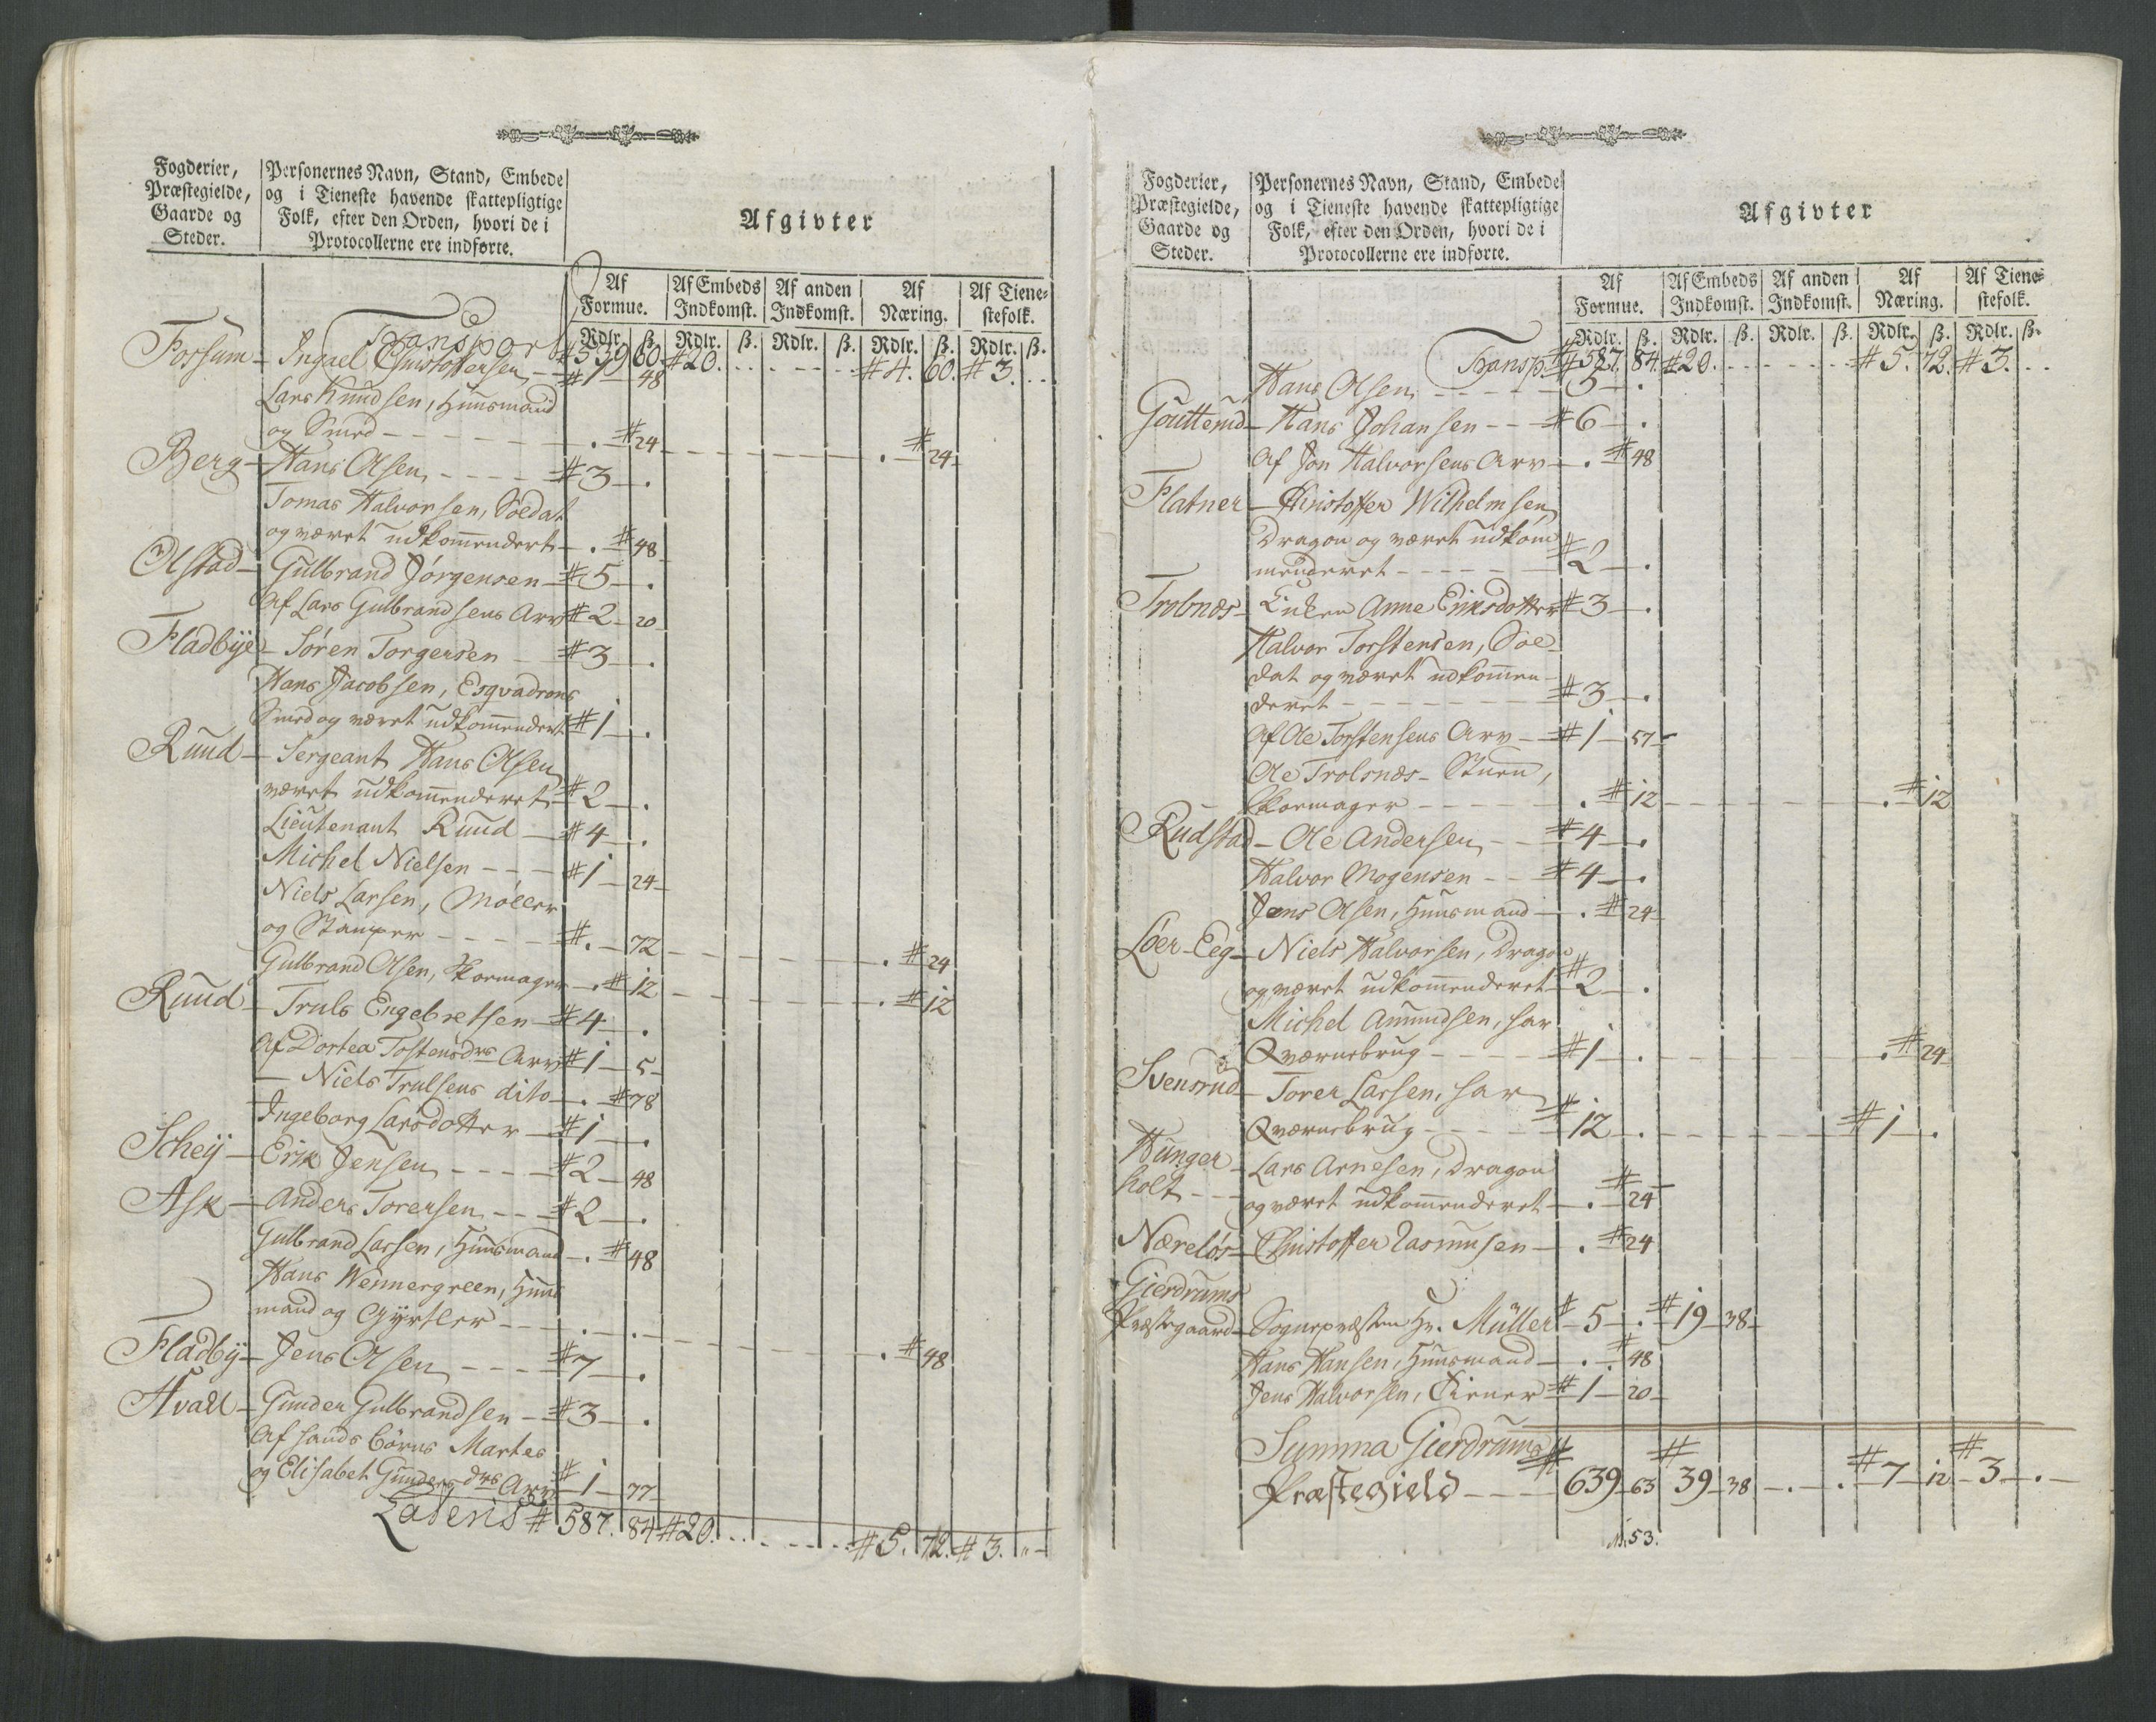 Fogderier,
Præstegielde,
Gaarde og
Steder.
Personernes Navn, Stand, Embede
og i Tieneste havende skattepligtige
Folk, efter den Orden, hvori de i
Protocollerne ere indførte.
Afgivter
Af Formue. Af Embeds Indkomst. Af anden Indkomst. Af Næring. Af Tienestefolk.
Rdlr. ß. Rdlr. ß. Rdlr. ß. Rdlr. ß. Rdlr. ß.
Transport # 539 60. # 20. . . . . . . # 4. 60. # 3. . .
Fossum - Ingael Christoffersen - # 1 - 48
Lars Knudsen, Huusmand
og Smed - - - . # 24 - - - . # 24
Berg - Hans Olsen - - - # 3 - .
Tomas Halvorsen, Soldat
og været udkommendert - . # 48
Olstad - Gulbrand Jørgensen - # 5 - .
Af Lars Gulbrandsens Arv # 2 - 20
Fladbye - Søren Torgersen - # 3 - .
Hans Jacobsen, Esqvadrons
Smed og været udkommendert # 1 - .
Ruud - Sergeant Hans Olsen
været udkommenderet - # 2 - .
Lieutenant Ruud - # 4 - .
Michel Nielsen - - - # 1 - 24
Niels Larsen, Møller
og Stamper - - - #. - 72 - - - . # 24
Gulbrand Olsen, Skomager - . # 12 - - - . # 12
Ruud - Truls Engebretsen - # 4 - .
Af Dortea Tostensdrs Arv # 1 - 5
- Niels Trulsens dito - . # 78
Ingeborg Larsdotter - # 1 - .
Scheij - Erik Jensen - - - # 2 - 48
Ask - Anders Torersen - - # 2 - .
Gulbrand Larsen, Huusmand - . # 48
Hans Wennergreen, Huus
mand og Gyrtler - - . - . - - - . # 48
Fladbÿ - Jens Olsen - - - # 7 - .
Hvall - Gunder Gulbrandsen - # 3 - .
Af hands Børns Martes
og Elisabet Gundersdrs Arv # 1 - 77
Lateris # 587. 84 # 20. . . . . . . # 5. 72. # 3. " -
Fogderier,
Præstegielde,
Gaarde og
Steder.
Personernes Navn, Stand, Embede
og i Tieneste havende skattepligtige
Folk, efter den Orden, hvori de i
Protocollerne ere indførte.
Afgivter
Af Formue. Af Embeds Indkomst. Af anden Indkomst. Af Næring. Af Tienestefolk.
Rdlr. ß. Rdlr. ß. Rdlr. ß. Rdlr. ß. Rdlr. ß.
Transp. # 587. 84. # 20. . . . . . . # 5. 72. # 3. . .
Hans Olsen - - - 5 - .
Goutterud - Hans Johansen - - # 6 - .
Af Jon Halvorsens Arv - . # 48
Flatner - Christoffer Wilhelmsen
Dragon og været udkom
menderet - - - # 2 - .
Trolsnæs - Enken Anne Eriksdotter # 3 - .
Halvor Torstensen, Sol
dat og været udkommen
deret - - - # 3 - .
Af Ole Torstensens Arv - # 1 - 57
Ole Trolsnæs-Stuen,
Skomager - - - . # 12 - - - . # 12
Rudstad - Ole Andersen - - # 4 - .
Halvor Mogensen - - # 4 - .
Jens Olsen, Huusmand - . # 24
Løer-Eeg - Niels Halvorsen, Dragon
og været udkommenderet # 2 - .
Michel Amundsen, har
Qværnebrug - - - # 1 - . - - - . # 24
Svensrud - Torer Larsen, har
Qværnebrug - - - # 12 - . - - - # 1 - .
Hunger
holt - - Lars Arnesen, Dragon
og været udkommenderet - . - # 24
Næreløs - Christoffer Rasmusen - . # 24
Gierdrums
Præstegaard - Sognepræsten Hr. Müller # 5 - . # 19 - 38
Hans Hansen, Huusmand - . # 48
Jens Halvorsen, Tiener # 1 - 20
Summa Gierdrums
Præstegield - - # 639 - 63 # 39 - 38 - . - . # 7 - 12 # 3 - . -
53.